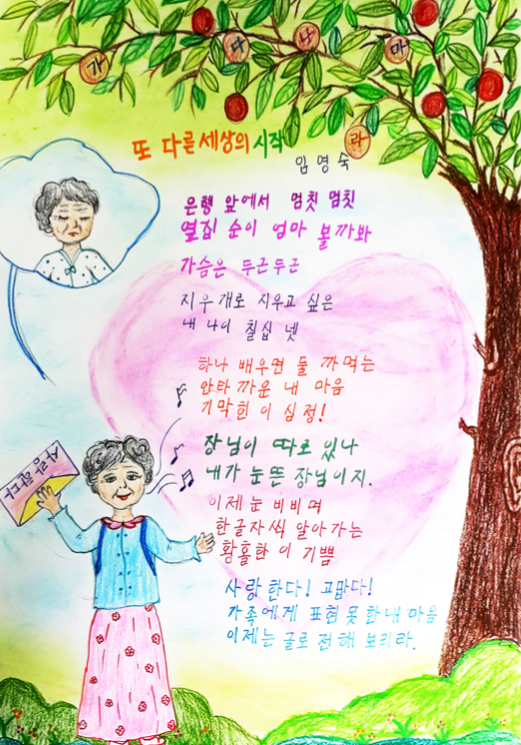 가 다 나 마
라
또 다른 세상의 시작
임영숙
은행 앞에서 멈칫 멈칫
옆집 순이 엄마 볼까봐
가슴은 두근두근
지우개로 지우고 싶은
내 나이 칠십 넷
하나 배우면 둘 까먹는
안타까운 내 마음
기막힌 이 심정!
장님이 따로 있나
내가 눈뜬 장님이지.
이제 눈 비비며
한글자씩 알아가는
황홀한 이 기쁨
사랑한다! 고맙다!
가족에게 표현 못한 내 마음
이제는 글로 전해 보리라.
사랑한다